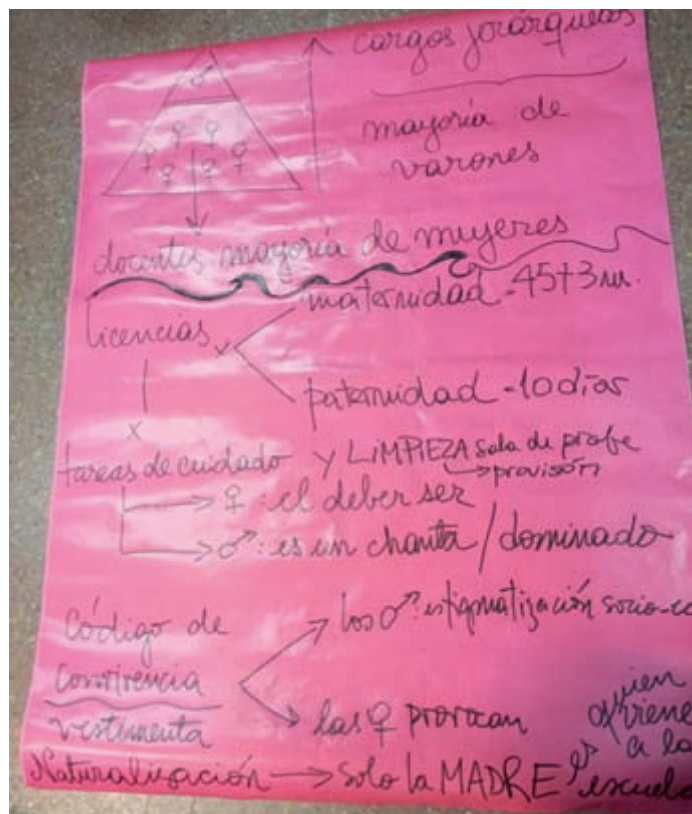 cargos jerárquicos
mayoría de
varones
docentes mayoría de mujeres
licencias
maternidad - 45+3m.
paternidad - 10 días
tareas de cuidado y LIMPIEZA sala de profe
provisión
♀: el deber ser
♂: es un chanta / dominado
Código de
convivencia
vestimenta
los ♂ estigmatización socio-
las ♀ provocan
Naturalización → Solo la MADRE es
quien
viene
a la
escuela